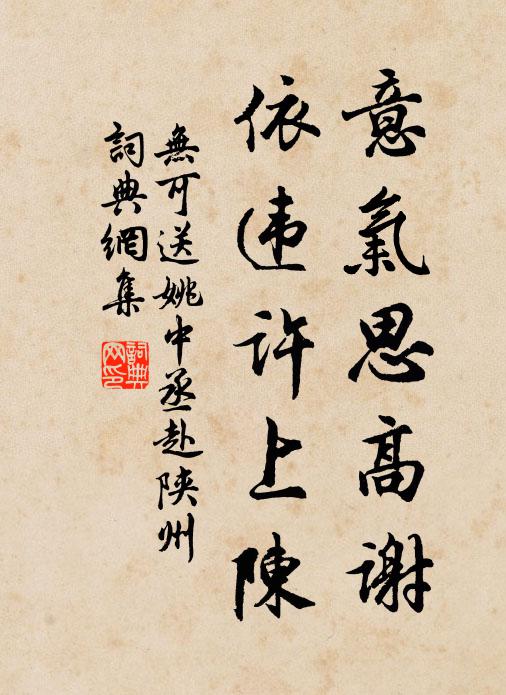 意氣思高謝
依违許上陳
無可送姚中丞赴陝州
詞典網集
詞典网印